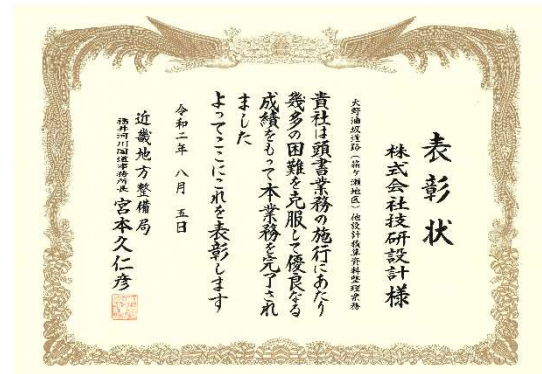 表彰状
株式会社技研設計様
大野油坂道路(箱ケ瀬地区)他設計積算資料整理業務
貴社は頭書業務の施行にあたり
幾多の困難を克服して優良なる
成績をもって本業務を完了され
ました
よってここにこれを表彰します
令和二年 八月 五日
近畿地方整備局
福井河川国道事務所長 宮本久仁彦